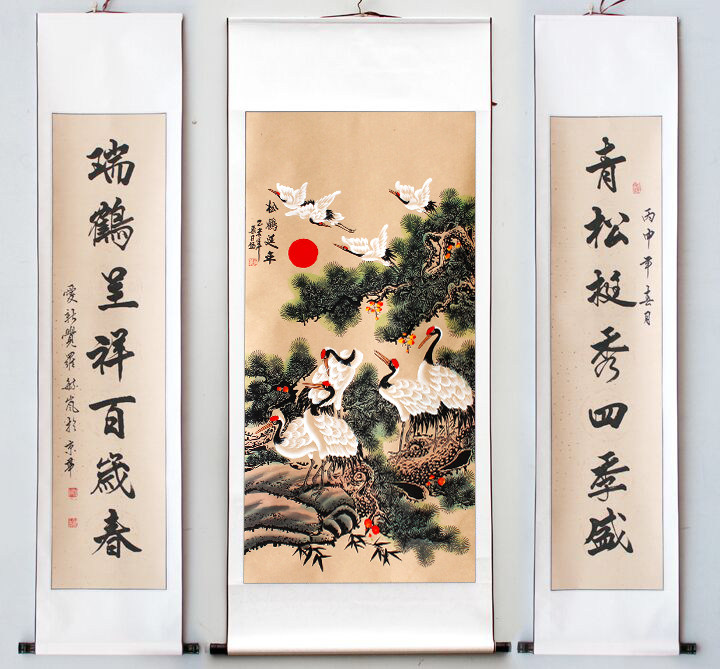 青松挺秀四季盛
丙申年春月
松鶴延年
乙未年
瑞鶴呈祥百歲春
愛新覺羅敏嵐於京華